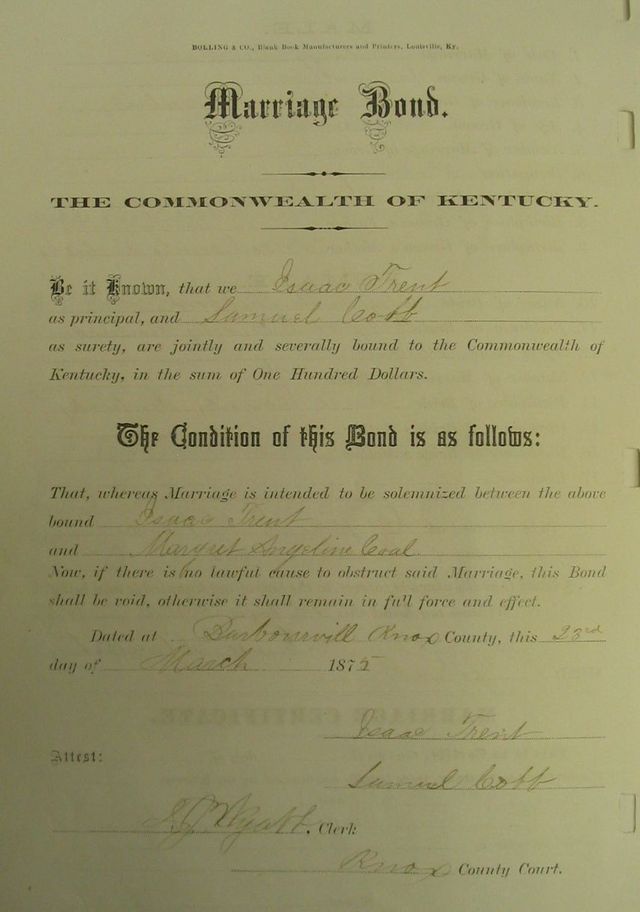 BOLLING & CO., Blank Book Manufacturers and Printers, Louisville, Ky.
Marriage Bond.
THE COMMONWEALTH OF KENTUCKY.
Be it Known, that we Isaac Trent
as principal, and Samuel Cobb
as surety, are jointly and severally bound to the Commonwealth of
Kentucky, in the sum of One Hundred Dollars.
The Condition of this Bond is as follows:
That, whereas Marriage is intended to be solemnized between the above
bound Isaac Trent
and Margret Angeline Coal
Now, if there is no lawful cause to obstruct said Marriage, this Bond
shall be void, otherwise it shall remain in full force and effect.
Dated at Barbourvill Knox County, this 23rd
day of March 1875
Isaac Trent
Attest:
Samuel Cobb
Wyatt, Clerk
Knox County Court.